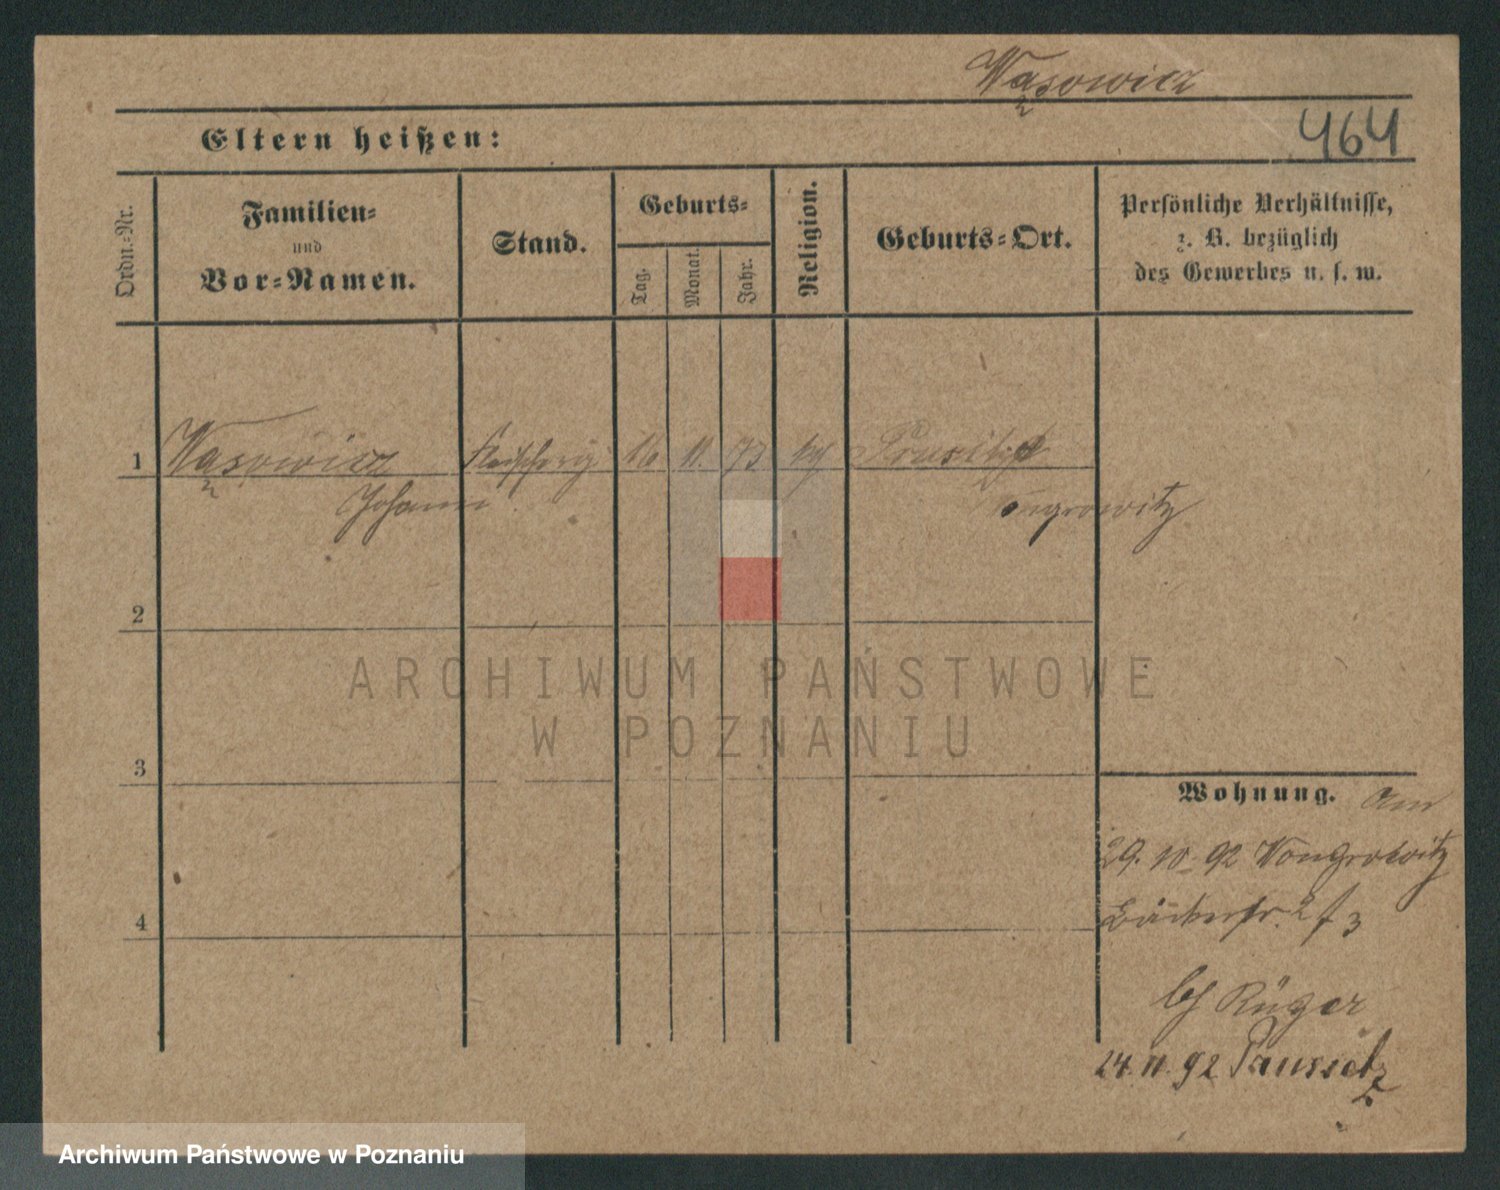 Wąsowicz
464
Eltern heißen:
Ordn.-Nr.
Familien-
und
Vor-Namen.
Stand.
Geburts-
Tag.
Monat.
Jahr.
Religion.
Geburts-Ort.
Persönliche Verhältnisse,
z. B. bezüglich
des Gewerbes u. s. w.
1 Wąsowicz 16 11. 73
Johann
2
3
4
ARCHIWUM PAŃSTWOWE
W POZNANIU
Wohnung. Am
29. 10. 92 Wongrowitz
Bäckerstr. 2
Rüger
24. 11. 92
Archiwum Państwowe w Poznaniu